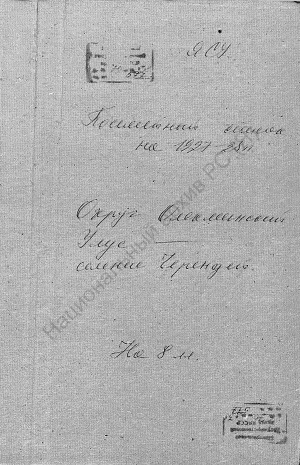 ЯСУ.
Посемейный список
на 1927-28 г.
Округ Олекминский
Улус —
селение Чережндей.
На 8 л.
Национальный архив РС(Я)